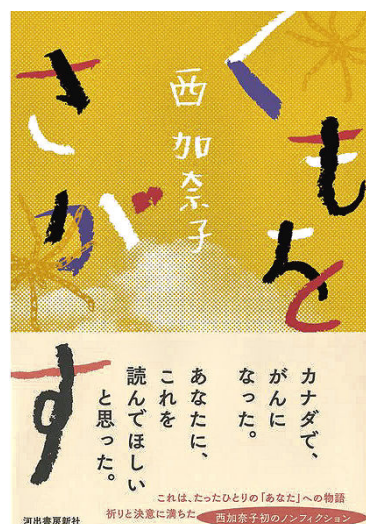 くもを
さがす
西 加奈子
カナダで、
がんに
なった。
あなたに、
これを
読んでほしい
と思った。
これは、たったひとりの「あなた」への物語
祈りと決意に満ちた
西加奈子初のノンフィクション
河出書房新社